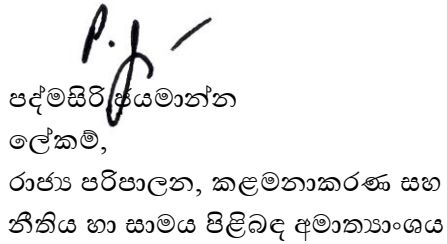 පද්මසිරි ජයමාන්න
ලේකම්,
රාජ්‍ය පරිපාලන, කළමනාකරණ සහ
නීතිය හා සාමය පිළිබඳ අමාත්‍යාංශය